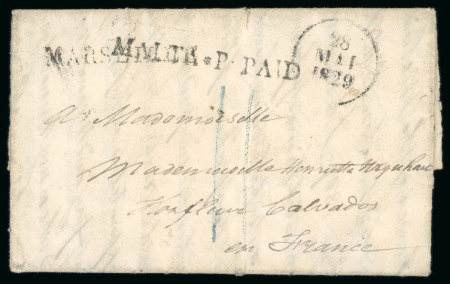 MALTA P. PAID
MARSEILLE
28
MAI
1829
A Mademoiselle
Mademoiselle Henrietta
Honfleur Calvados
en France